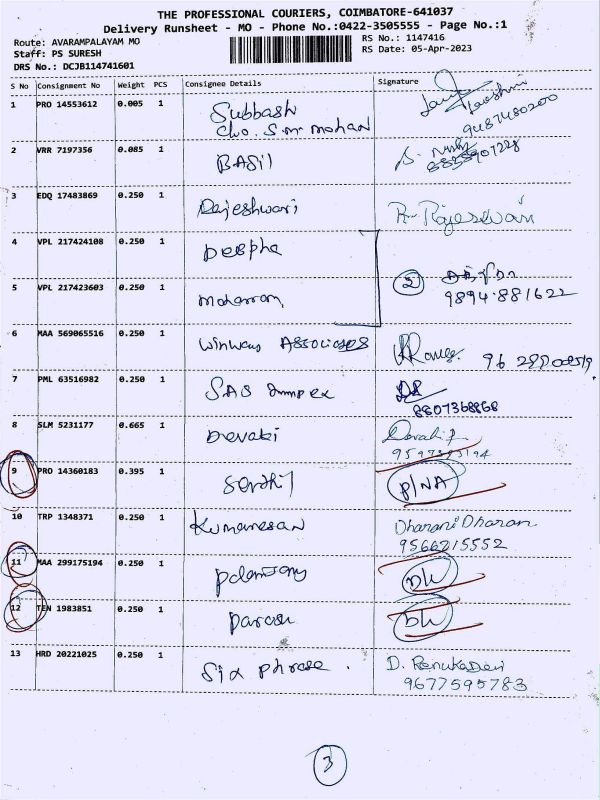 THE PROFESSIONAL COURIERS, COIMBATORE-641037
Delivery Runsheet - MO - Phone No.:0422-3505555 - Page No.:1
Route: AVARAMPALAYAM MO
RS No.: 1147416
Staff: PS SURESH
RS Date: 05-Apr-2023
DRS No.: DCJB114741601
S No Consignment No Weight PCS Consignee Details Signature
1 PRO 14553612 0.005 1 Subbash
c/o. S.M mohan 9487480200
2 VRR 7197356 0.085 1 BASil
3 EDQ 17483869 0.250 1 Rajeshwari R. Rajeswari
4 VPL 217424108 0.250 1 Deepha
5 VPL 217423603 0.250 1 2
9894.881622
6 MAA 569065516 0.250 1 Winways Associates
7 PML 63516982 0.250 1 SAS Impex
8807368868
8 SLM 5231177 0.665 1 Devaki
9 PRO 14360183 0.395 1 Senthil P/NA
10 TRP 1348371 0.250 1 Kumaresan Dharani Dharan
9566215552
11 MAA 299175194 0.250 1 DL
12 TEN 1983851 0.250 1 DL
13 HRD 20221025 0.250 1 Six Phrase. D. RenukaDevi
9677595783
3